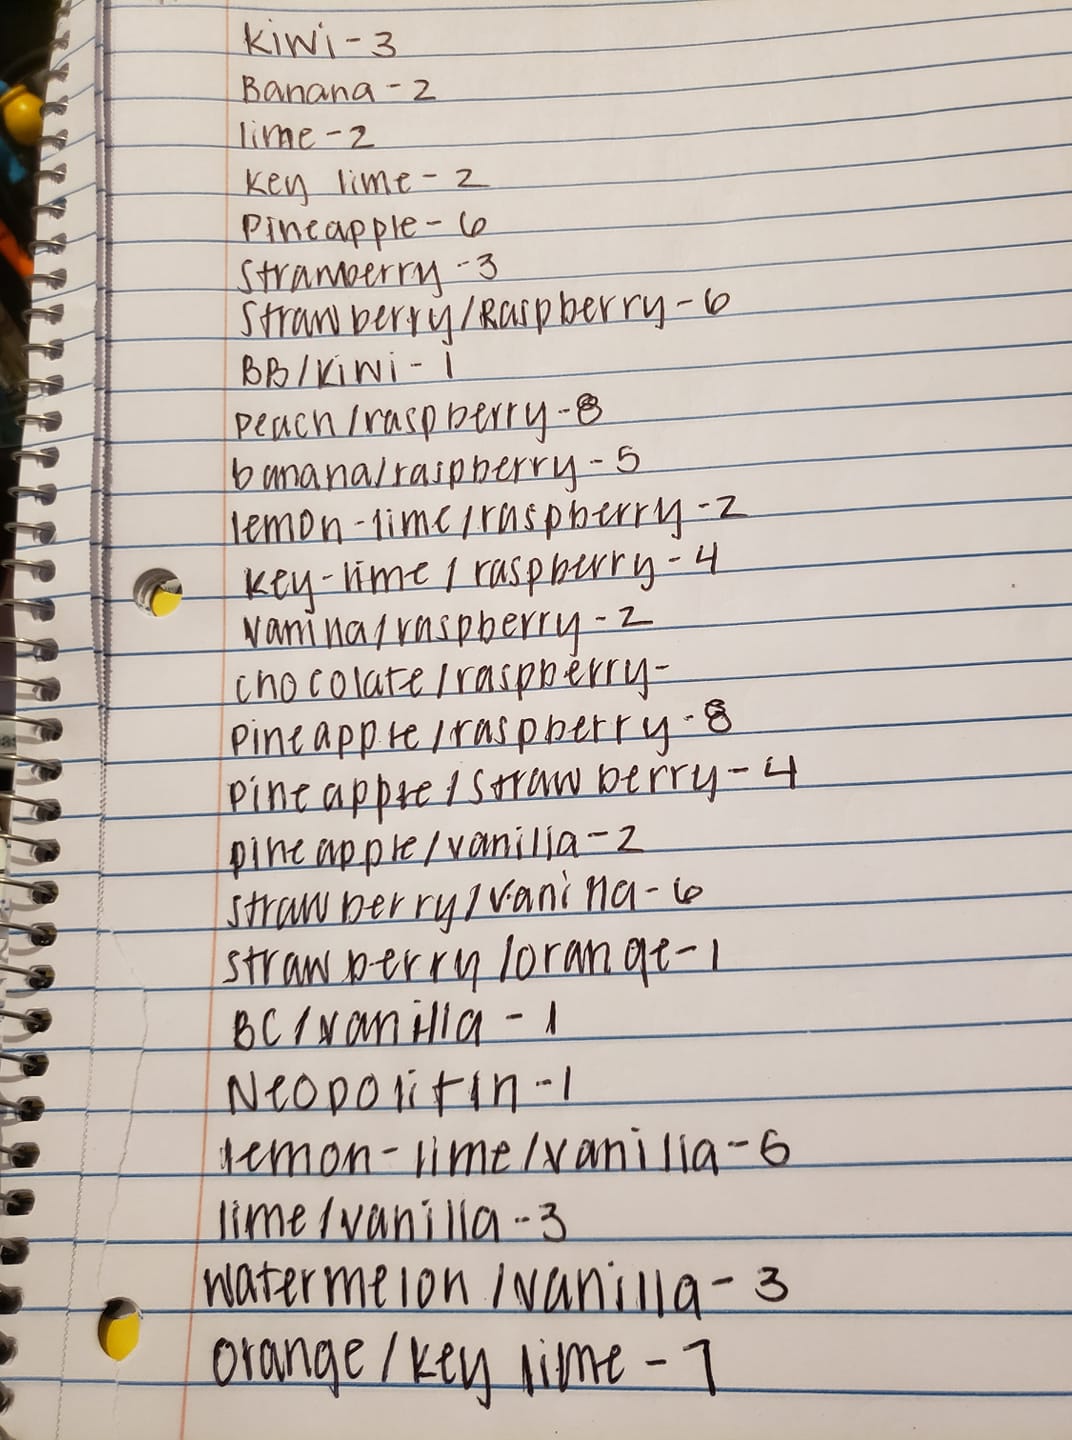 Kiwi - 3
Banana - 2
lime - 2
Key lime - 2
Pineapple - 6
Strawberry - 3
Strawberry/Raspberry - 6
BB/Kiwi - 1
peach/raspberry - 8
banana/raspberry - 5
lemon-lime/raspberry - 2
key-lime/raspberry - 4
vanilla/raspberry - 2
chocolate/raspberry -
pineapple/raspberry - 8
pineapple/strawberry - 4
pineapple/vanilla - 2
strawberry/vanilla - 6
strawberry/orange - 1
BC/vanilla - 1
Neopolitin - 1
lemon-lime/vanilla - 6
lime/vanilla - 3
watermelon/vanilla - 3
orange/key lime - 7